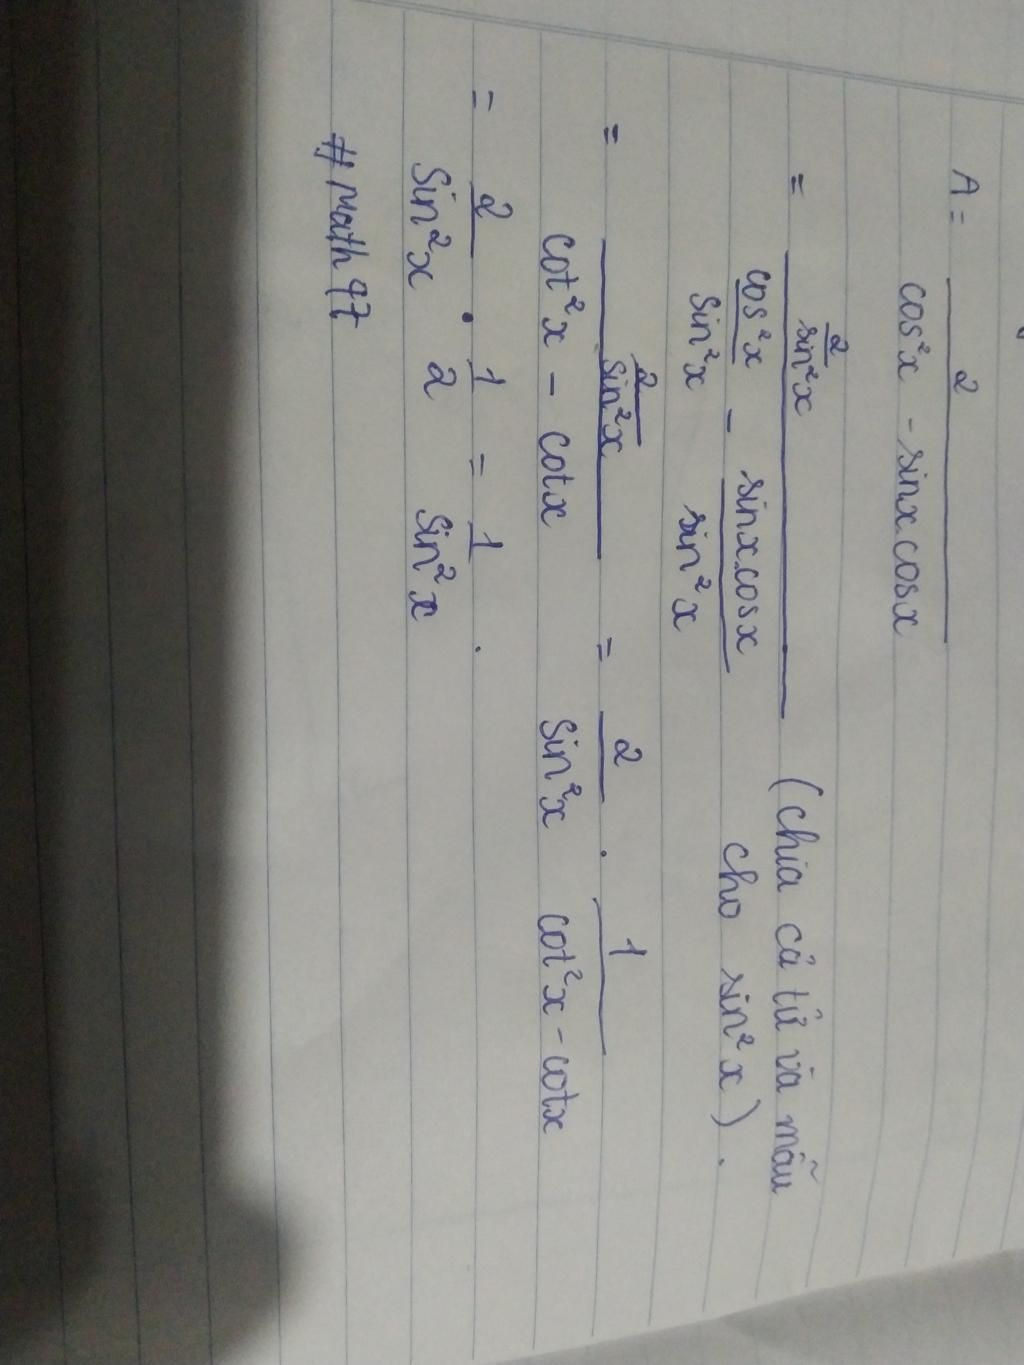 A = 2 / (cos²x - sinx.cosx)
= (2/sin²x) / (cos²x/sin²x - sinx.cosx/sin²x) (chia cả tử và mẫu
cho sin²x).
= (2/sin²x) / (cot²x - cotx) = 2/sin²x . 1/(cot²x - cotx)
= 2/sin²x . 1/2 = 1/sin²x .
#Math97